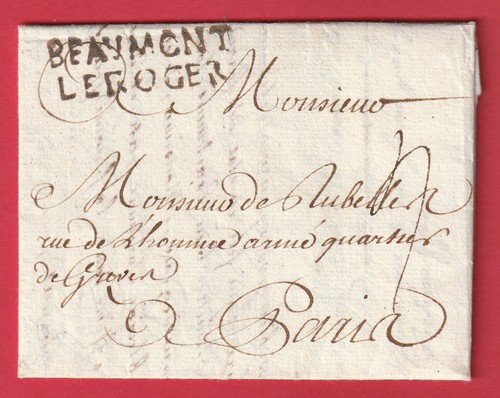 BEAUMONT
LEROGER
Monsieur
Monsieur de Rubelles
rue de L'homme armé quartier
de Greves
a Paris